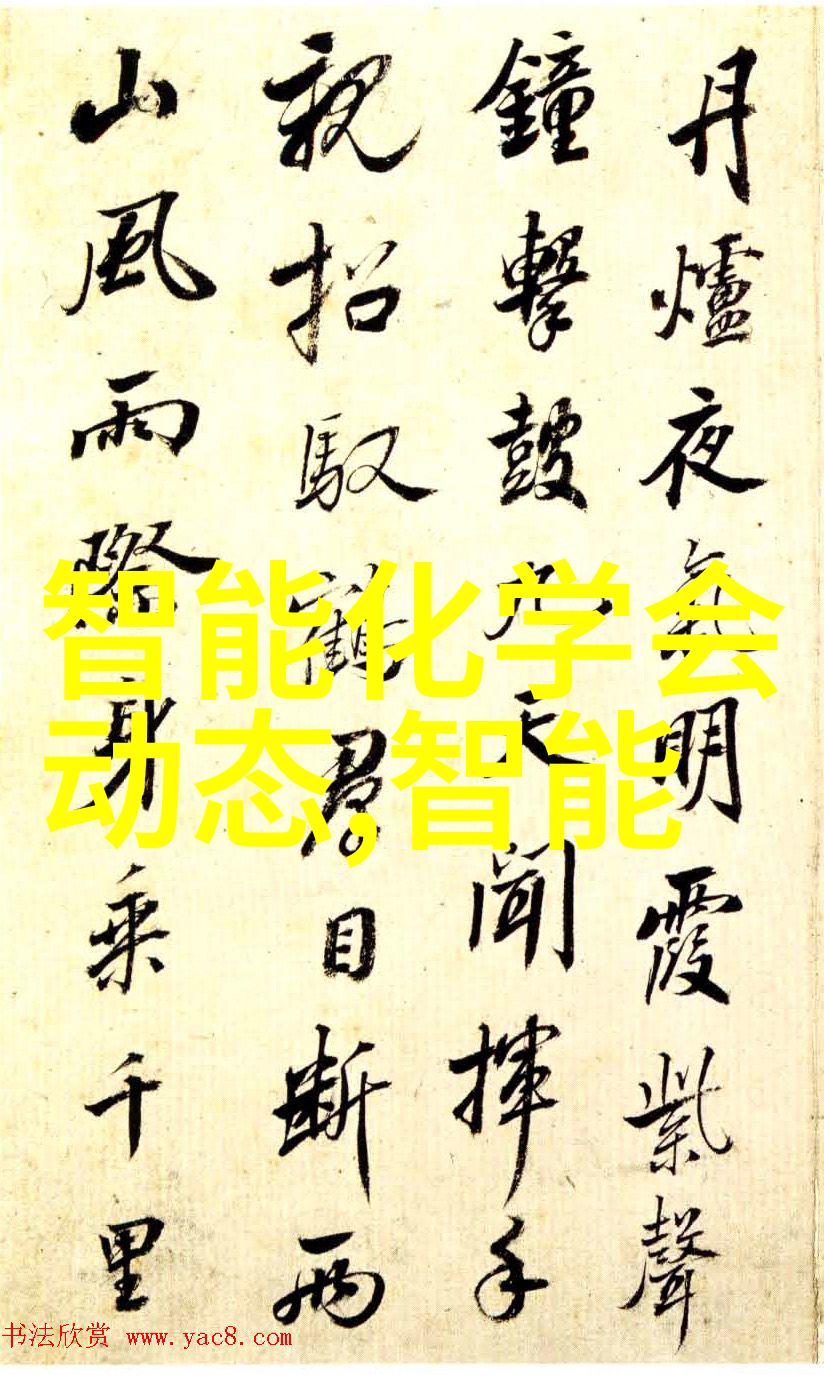 丹爐夜氣明霞紫聲
鐘擊鼓九天聞揮手
親招馭鶴君目斷兩
山風雨際身乘千里
智能化学会
动态,智能
书法欣赏 www.yac8.com